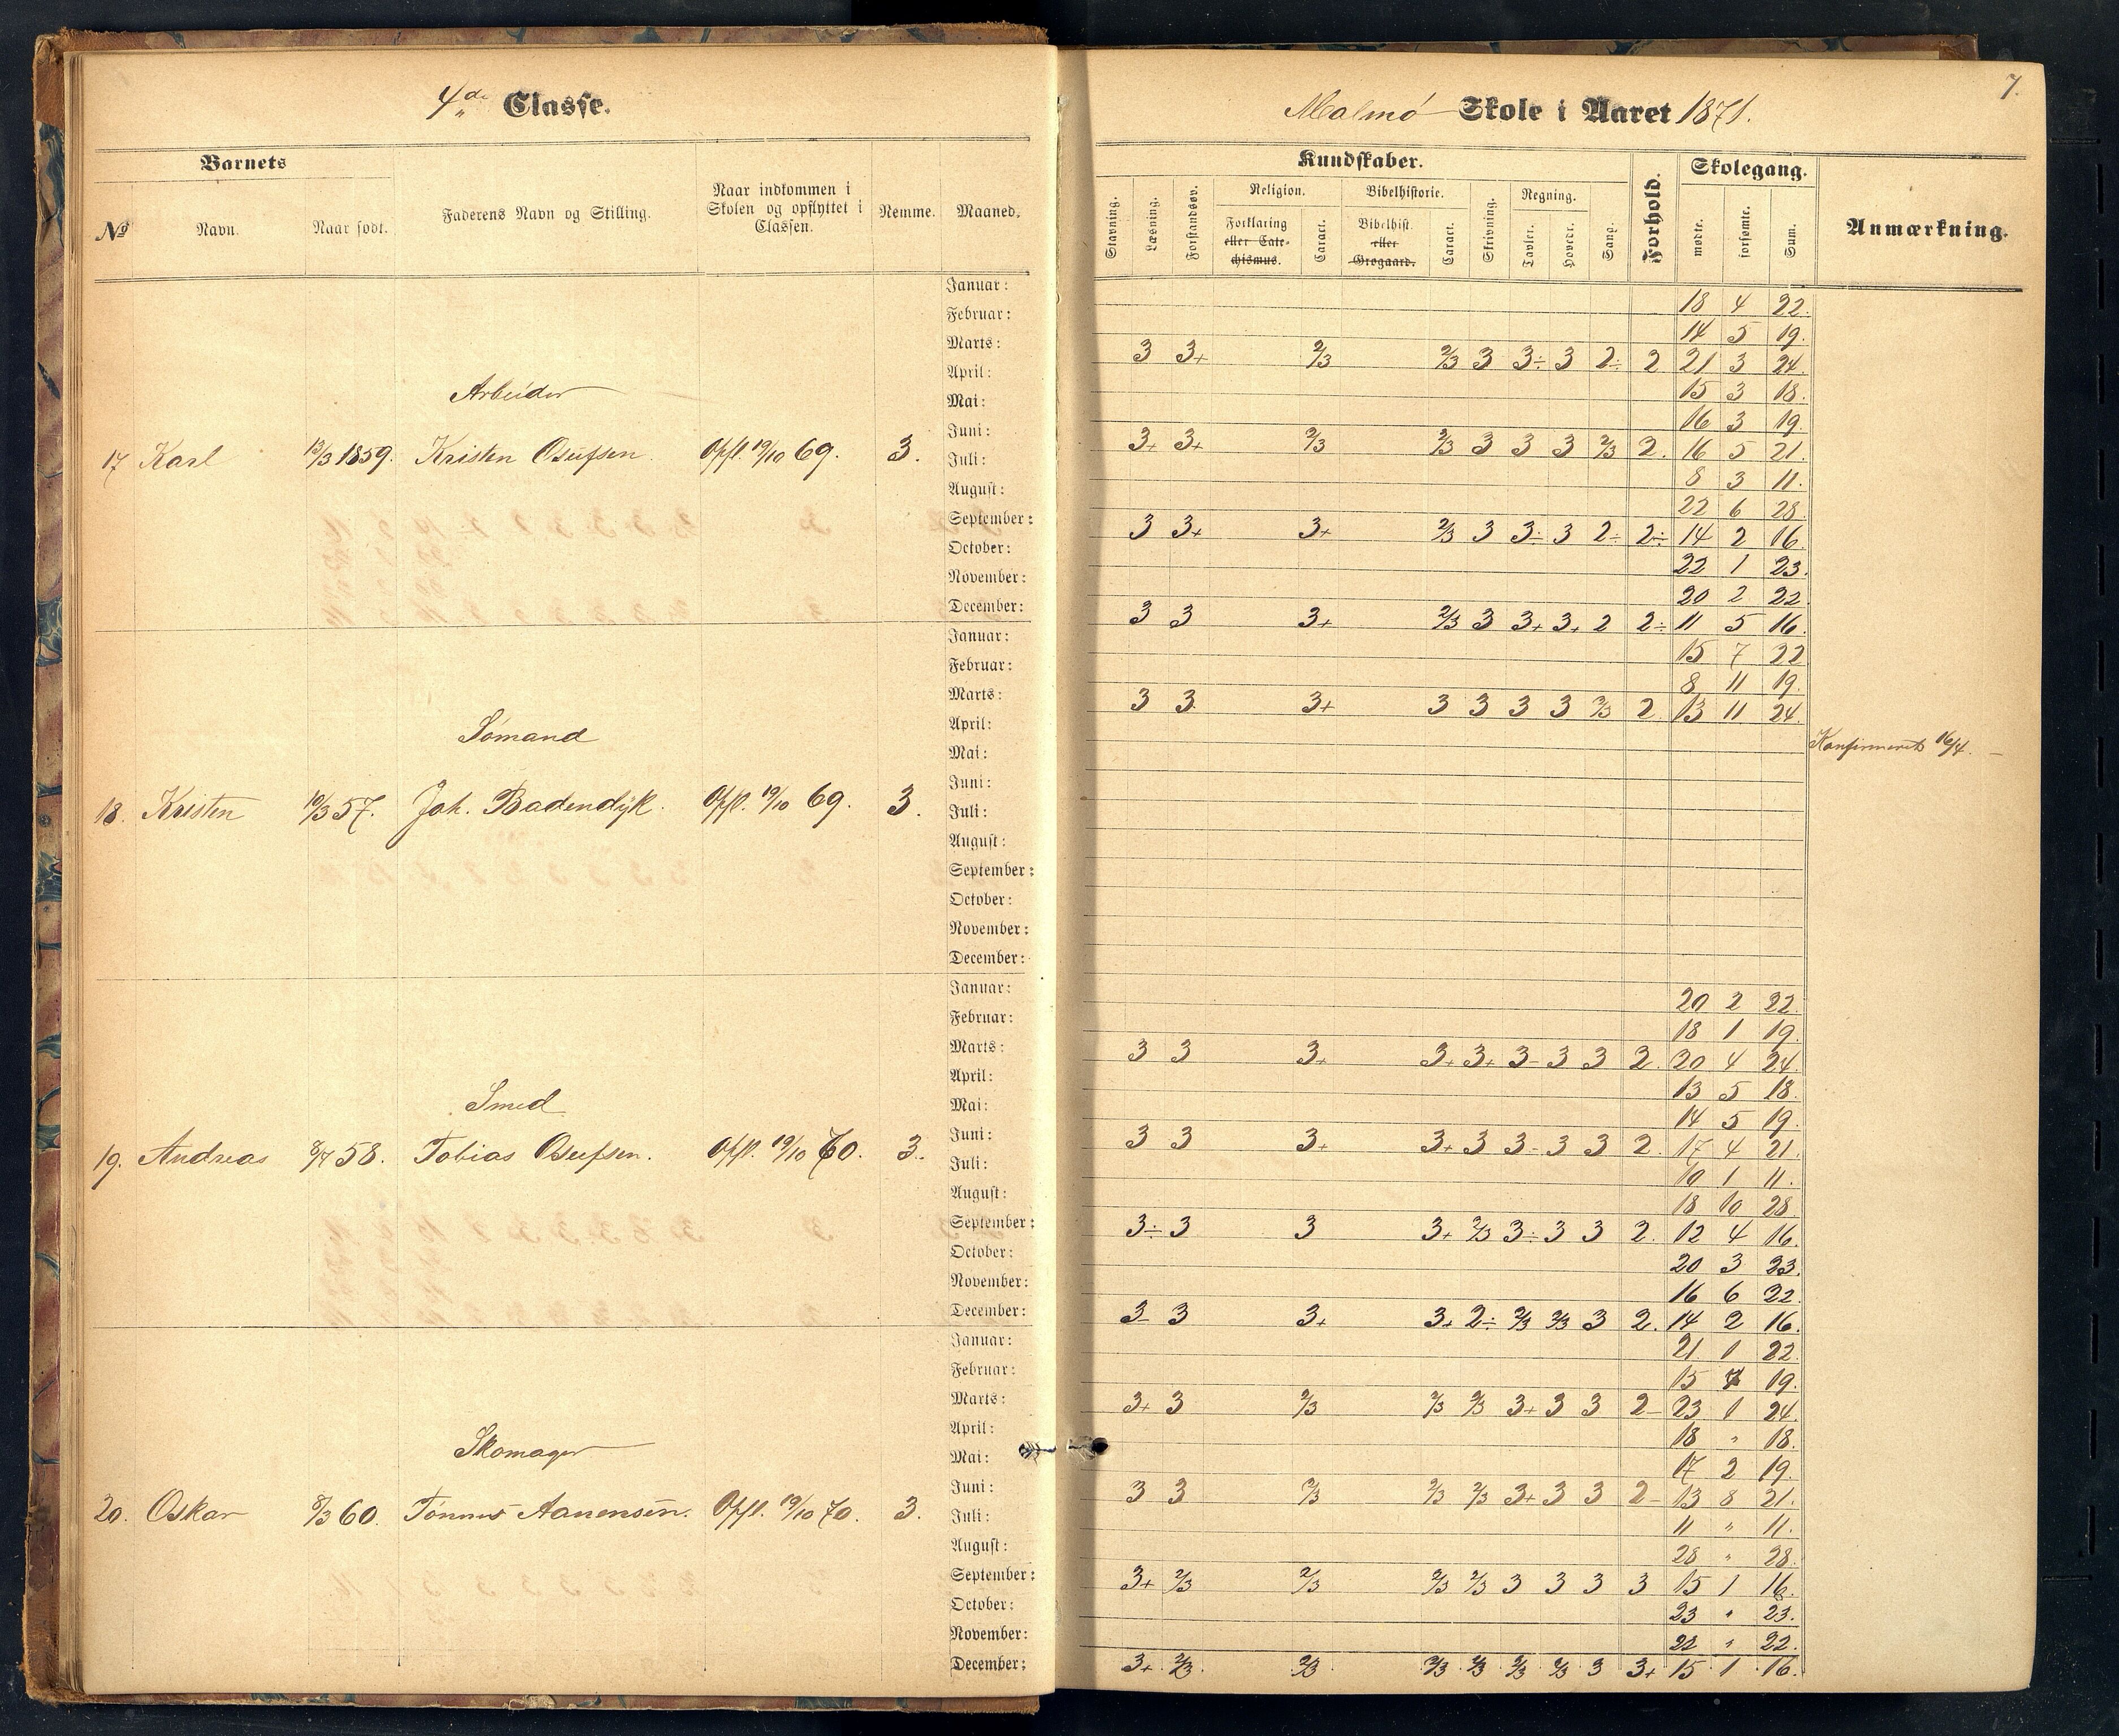 4de Classe.
Malmø Skole i Aaret 1871.
7.
Barnets
№
Navn.
Naar født.
Faderens Navn og Stilling.
Naar indkommen i
Skolen og opflyttet i
Classen.
Nemme.
Maaned.
Kundskaber.
Stavning.
Læsning.
Forstandsøv.
Religion.
Forklaring
eller Cate-
chismus.
Caract.
Bibelhistorie.
Bibelhist.
eller
Grøgaard.
Caract.
Skrivning.
Regning.
Tavler.
Hovedr.
Sang.
Forhold.
Skolegang.
mødte.
forsømte.
Sum.
Anmærkning.
Arbeider
17 Karl 13/3 1859. Kristen Osufsen. Opfl. 19/10 69. 3.
Januar: 18 4 22.
Februar: 14 5 19.
Marts: 3 3+ 2/3 2/3 3 3÷ 3 2÷ 2 21 3 24.
April: 15 3 18.
Mai: 16 3 19.
Juni: 3+ 3+ 2/3 2/3 3 3 3 2/3 2. 16 5 21.
Juli: 8 3 11.
August: 22 6 28.
September: 3 3+ 3+ 2/3 3 3÷ 3 2÷ 2÷ 14 2 16.
October: 22 1 23.
November: 20 2 22.
December: 3 3 3+ 2/3 3 3+ 3+ 2 2÷ 11 5 16.
Sømand
18. Kristen 10/3 57. Joh. Badendijk. Opfl. 19/10 69. 3.
Januar: 15 7 22
Februar: 8 11 19.
Marts: 3 3. 3+ 3 3 3 3 2/3 2. 13 11 24.
April: Konfirmeret 16/4.
Mai:
Juni:
Juli:
August:
September:
October:
November:
December:
Smed
19. Andreas 8/4 58. Tobias Osufsen. Opfl. 19/10 70. 3.
Januar: 20 2 22.
Februar: 18 1 19.
Marts: 3 3 3+ 3+ 3+ 3- 3 3 2. 20 4 24.
April: 13 5 18.
Mai: 14 5 19.
Juni: 3 3 3+ 3+ 3 3- 3 3 2. 17 4 21.
Juli: 10 1 11.
August: 18 10 28.
September: 3÷ 3 3 3+ 2/3 3÷ 3 3 2. 12 4 16.
October: 20 3 23.
November: 16 6 22.
December: 3- 3 3+ 3+ 2÷ 2/3 2/3 3 2. 14 2 16.
Skomager
20. Oskar 8/3 60. Tønnes Aanensen. Opfl. 19/10 70. 3.
Januar: 21. 1 22.
Februar: 15 4 19.
Marts: 3+ 3 2/3 2/3 2/3 3+ 3 3 2- 23 1 24.
April: 18 " 18.
Mai: 17 2 19.
Juni: 3 3 2/3 2/3 2/3 3+ 3 3 2- 13 8 21.
Juli: 11 " 11.
August: 28 " 28.
September: 3+ 2/3 2/3 2/3 2/3 3 3 3 3 15 1 16.
October: 23 " 23.
November: 22 " 22.
December: 3+ 2/3. 2/3 2/3 2/3 2/3 2/3 3 3+ 15 1 16.